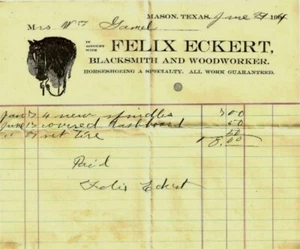 MASON, TEXAS, June 24 1904
Mrs. Wm Gamel
IN ACCOUNT WITH FELIX ECKERT,
BLACKSMITH AND WOODWORKER.
HORSESHOEING A SPECIALTY. ALL WORK GUARANTEED.
4 new spindles
covered dashboard 50
set tire
Paid
Felix Eckert